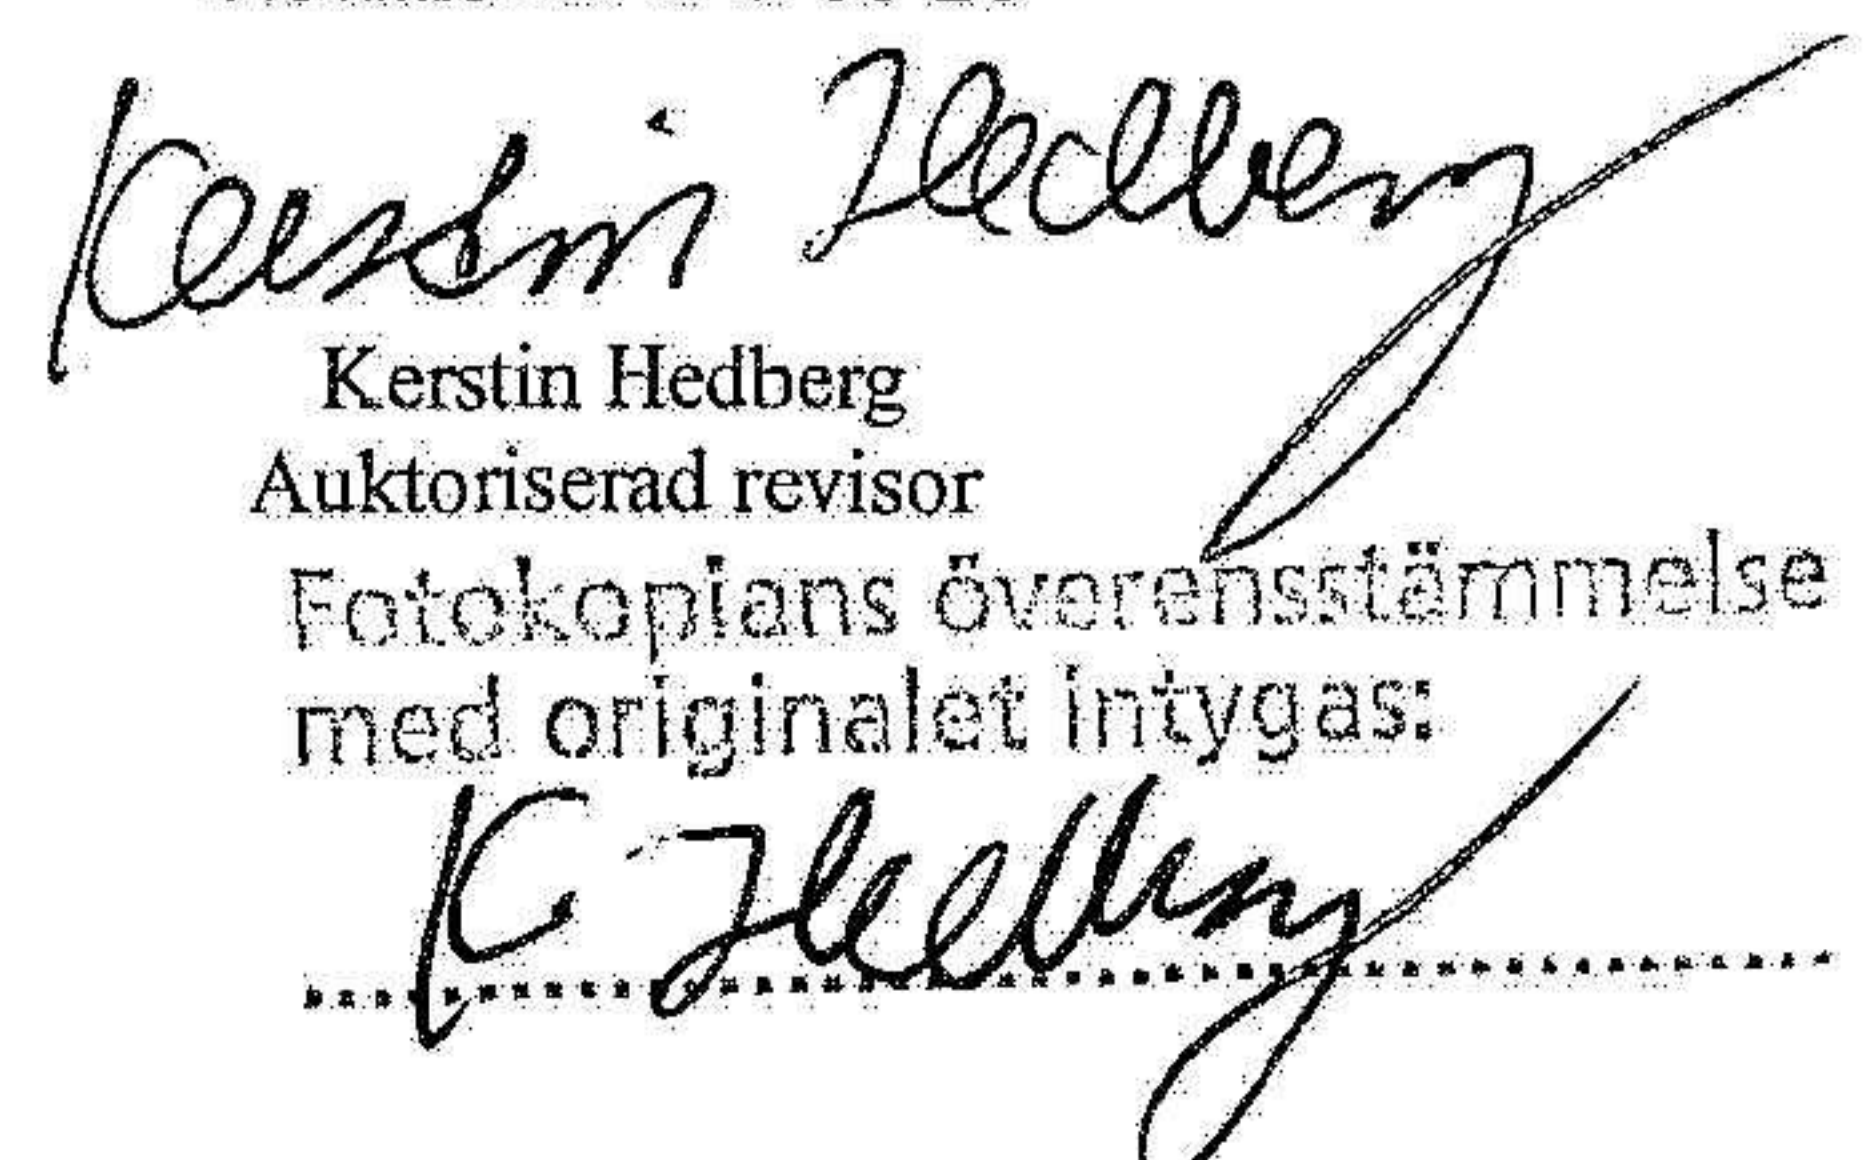 Kerstin Hedberg
Kerstin Hedberg
Auktoriserad revisor
Fotokopians överensstämmelse
med originalet intygas:
K. Hedberg